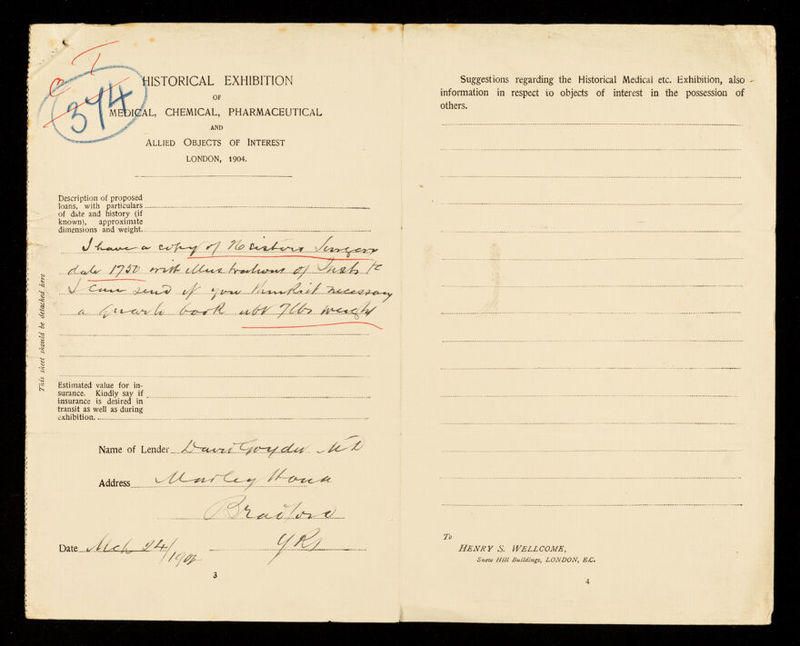 374
HISTORICAL EXHIBITION
OF
MEDICAL, CHEMICAL, PHARMACEUTICAL
AND
ALLIED OBJECTS OF INTEREST
LONDON, 1904.
Description of proposed
loans, with particulars
of date and history (if
known), approximate
dimensions and weight.
I have a copy of Heisters Surgery
date 1750 with illustrations of Insts &c
I can send if you think it necessary
a quarto book abt 7lbs weight
This sheet should be detached here
Estimated value for in-
surance. Kindly say if
insurance is desired in
transit as well as during
exhibition.
Name of Lender David Goyder MD
Address Manley House
Bradford
Yks
Date Mch 24/
3
Suggestions regarding the Historical Medical etc. Exhibition, also
information in respect to objects of interest in the possession of
others.
To
HENRY S. WELLCOME,
Snow Hill Buildings, LONDON, E.C.
4